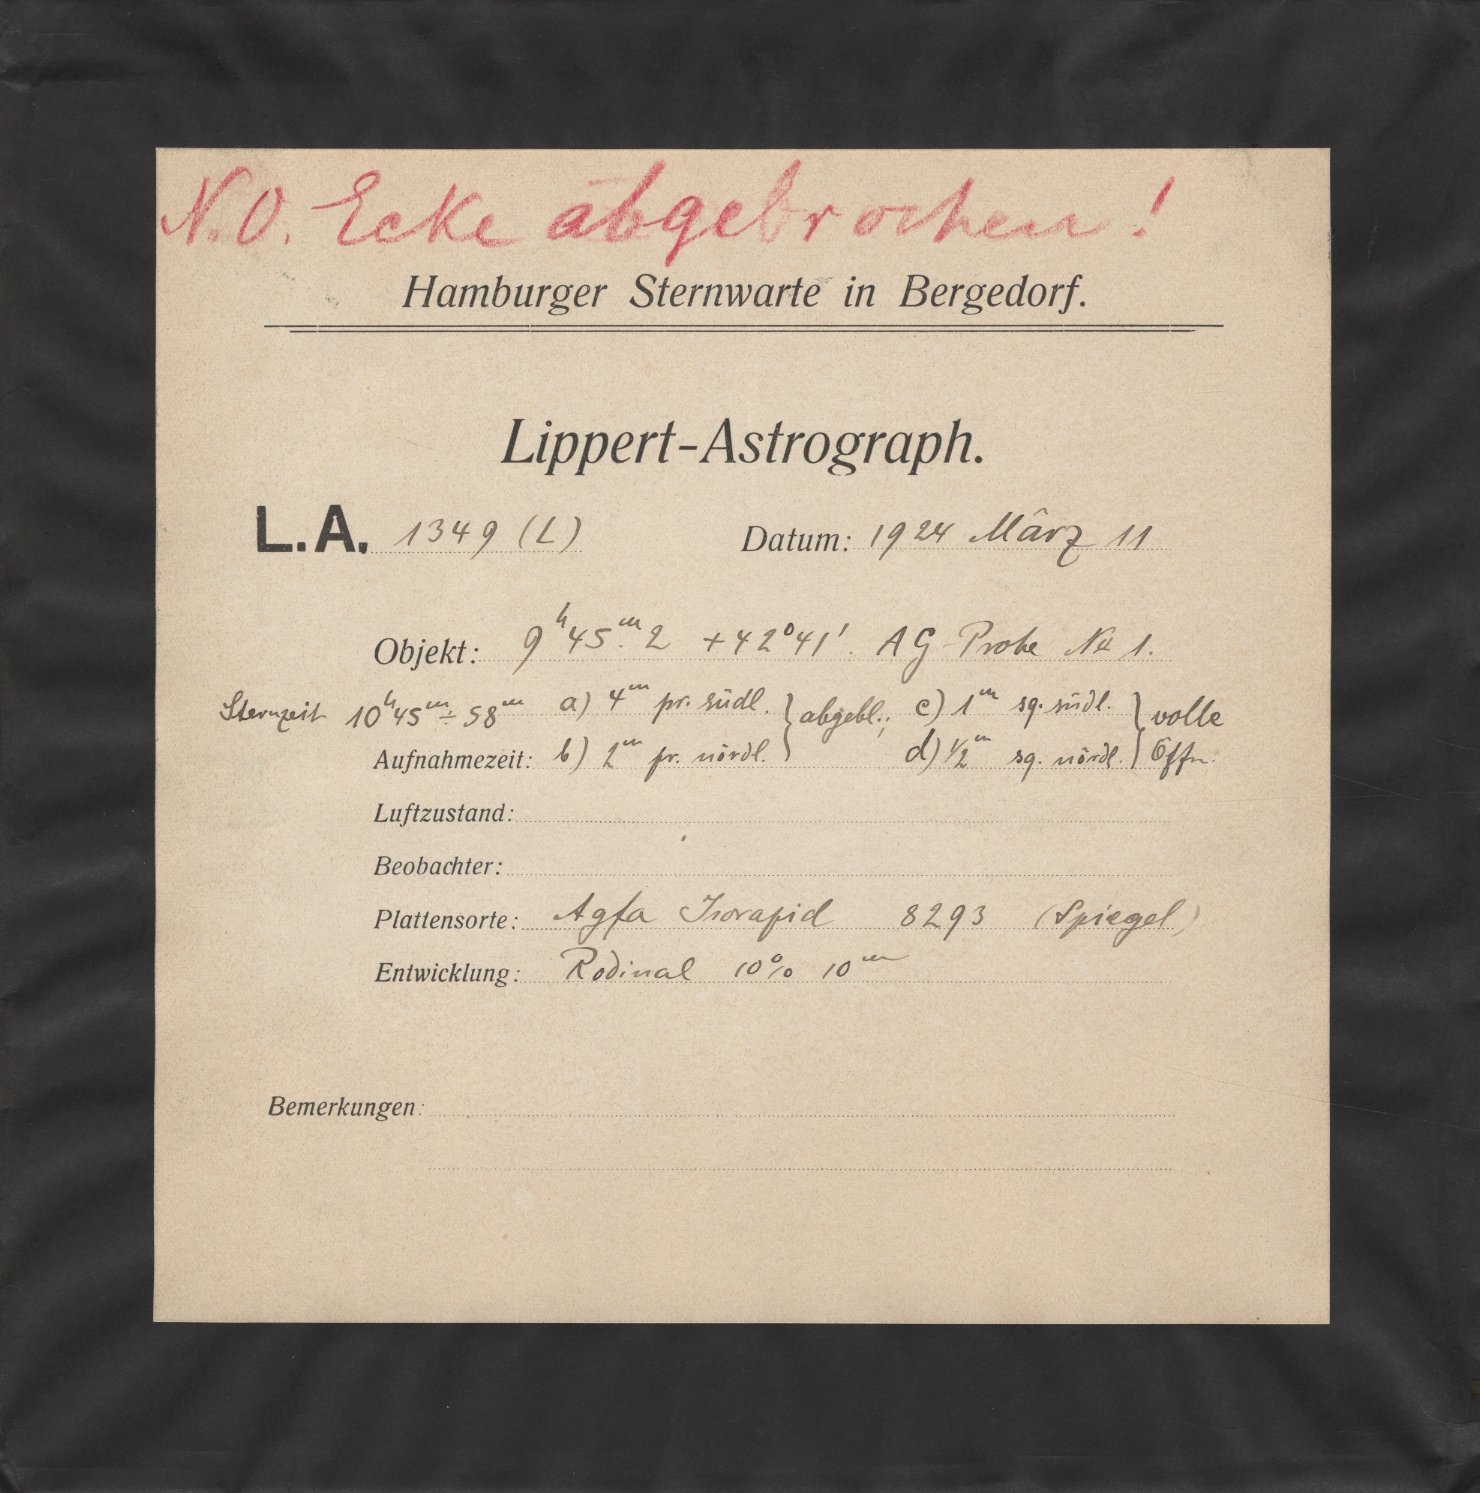 N.O. Ecke abgebrochen!
Hamburger Sternwarte in Bergedorf.
Lippert-Astrograph.
L.A. 1349 (L) Datum: 1924 März 11
Objekt: 9ʰ45ᵐ.2 +42°41' AG-Probe № 1.
Sternzeit 10ʰ45ᵐ÷58ᵐ a) 4ᵐ pr. südl. } abgebl.; c) 1ᵐ sq. südl. } volle
Aufnahmezeit: b) 2ᵐ pr. nördl. d) ½ᵐ sq. nördl. Öffn.
Luftzustand:
Beobachter:
Plattensorte: Agfa Isorapid 8293 (Spiegel)
Entwicklung: Rodinal 10% 10ᵐ
Bemerkungen: